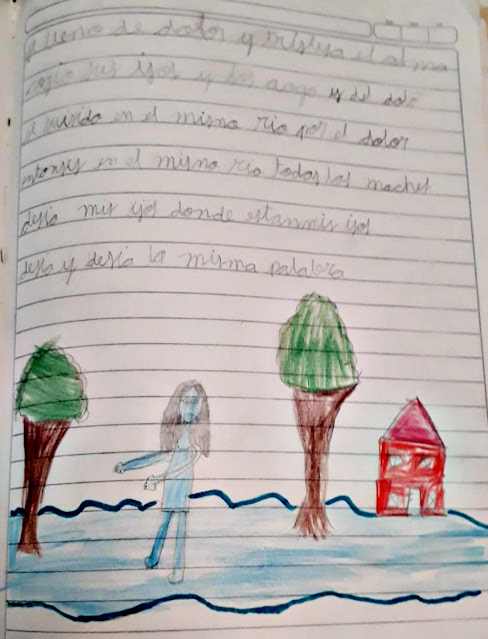 se lleno de dolor y tristesa el alma
cogio sus ijos y los aogo y del dolor
se suisido en el mismo rio por el dolor
entonses en el mismo rio todas las noches
desia mis ijos donde estan mis ijos
desia y desia la misma palabra